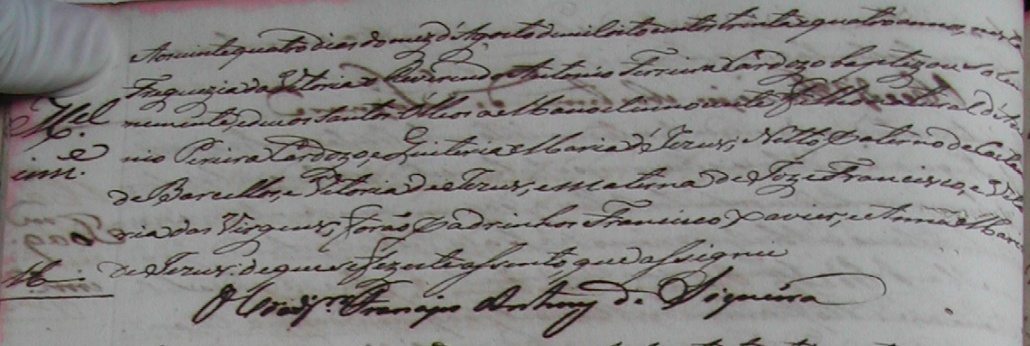 Aos vinte quatro dias do mez d'Agosto de mil oito centos trinta e quatro annos, nesta
Freguezia da Vitoria o Reverendo Antonio Ferreira Cardozo baptizou solem
nemente, e deo os Santos Oleos a Manoel innocente filho natural d'Anto
nio Pereira Cardozo, e Quiteria Maria de Jezus, Netto Paterno de Caeta
de Barcellos, e Vitoria de Jezus, e materno de Joze Francisco, e
ria das Virgens, forão Padrinhos Francisco Xavier, e Anna Mari
de Jezus: de que fiz este assento, que assignei
O Coadjor. Francisco Antonio de Siqueira
Mel
inne.